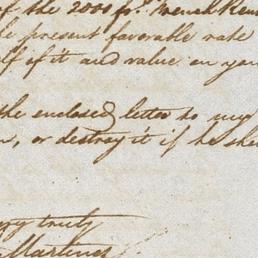 of the 2000 frs. French Ren
le present favorable rate
elf of it and value on you
the enclosed letter to my
n, or destroy it if he sho
ery truly
Martin